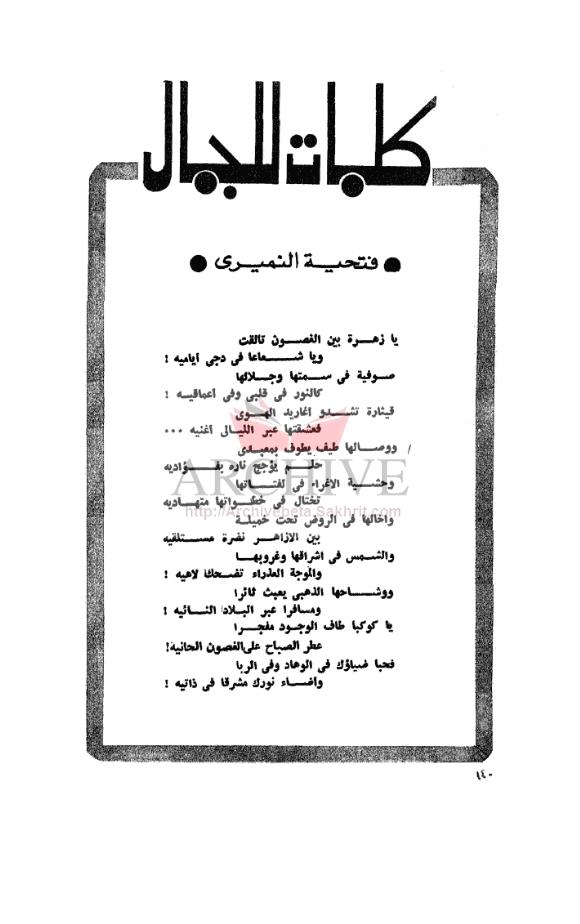 كلمات للجمال
● فتحية النميرى ●
يا زهرة بين الغصون تالقت
ويا شعاعا فى دجى أياميه !
صوفية فى سمتها وجلالها
كالنور فى قلبى وفى أعماقيه !
قيثارة تشدو أغاريد الهوى
فعشقتها عبر الليال أغنيه ...
ووصالها طيف يطوف بمعبدى
حلم يؤجج ناره بفؤاديه
وحشية الاغراء فى لفتاتها
تختال فى خطواتها متهاديه
واخالها فى الروض تحت خميلة
بين الازاهر نضرة مستلقيه
والشمس فى اشراقها وغروبها
والموجة العذراء تضحك لاهيه !
ووشاحها الذهبى يعبث ثائرا
ومسافرا عبر البلاد النائيه !
يا كوكبا طاف الوجود مفجرا
عطر الصباح على الغصون الحانية!
فحبا ضياؤك فى الوهاد وفى الربا
واضاء نورك مشرقا فى ذاتيه !
ARCHIVE
http://Archivebeta.Sakhrit.com
١٤٠